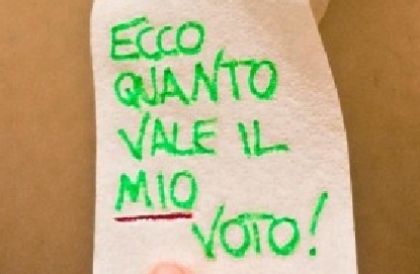 ECCO
QUANTO
VALE IL
MIO
VOTO!